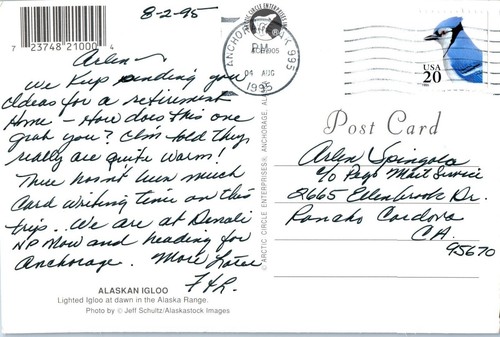 8-2-95
7 23748 21000 4
Arlen
We keep sending you
Ideas for a retirement
Home - How does this one
grab you? I'm told they
really are quite warm!
There hasn't been much
Card writing time on this
trip.. We are at Denali
NP Now and heading for
Anchorage. More Later
F & L.
ALASKAN IGLOO
Lighted Igloo at dawn in the Alaska Range.
Photo by © Jeff Schultz/Alaskastock Images
© ARCTIC CIRCLE ENTERPRISES® ANCHORAGE, AL
ANCHORAGE AK 995
PM
04 AUG
1995
USA
20
Post Card
Arlen Spingola
c/o Page Mart Service
2665 Ellenbrook Dr.
Rancho Cordova
CA.
95670